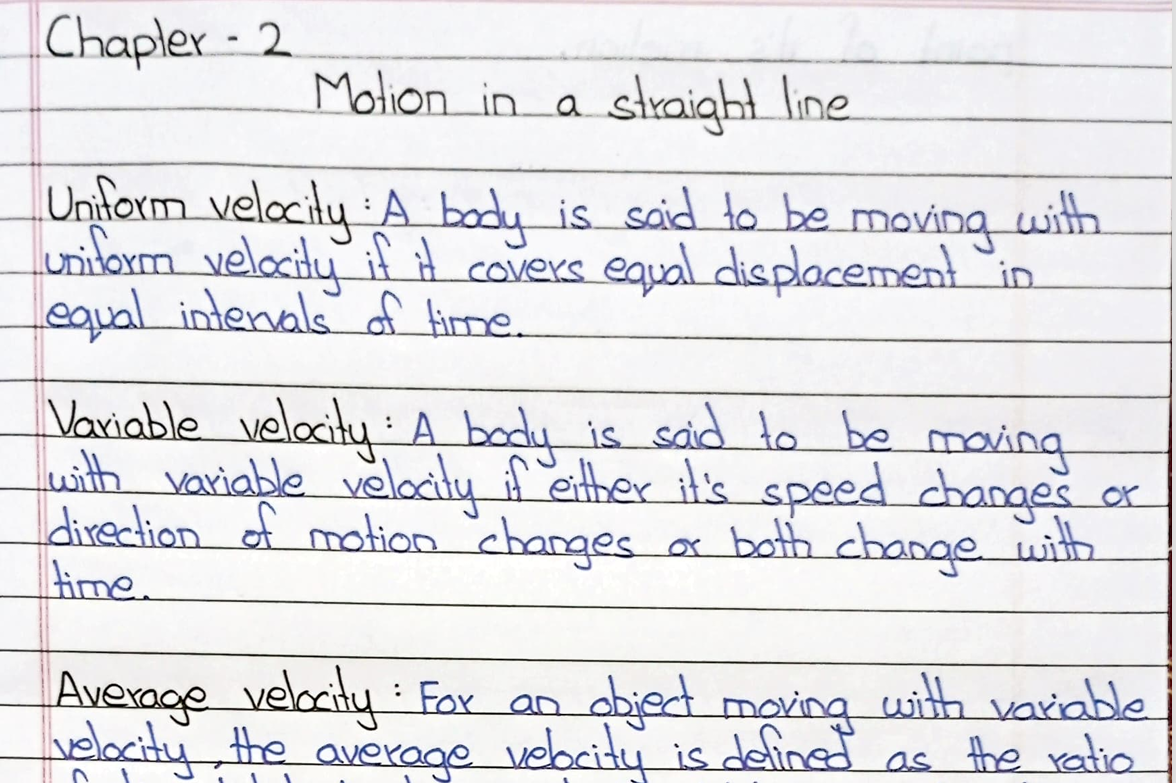 Chapter - 2
Motion in a straight line
Uniform velocity : A body is said to be moving with
uniform velocity if it covers equal displacement in
equal intervals of time.
Variable velocity : A body is said to be moving
with variable velocity if either it's speed changes or
direction of motion changes or both change with
time.
Average velocity : For an object moving with variable
velocity, the average velocity is defined as the ratio